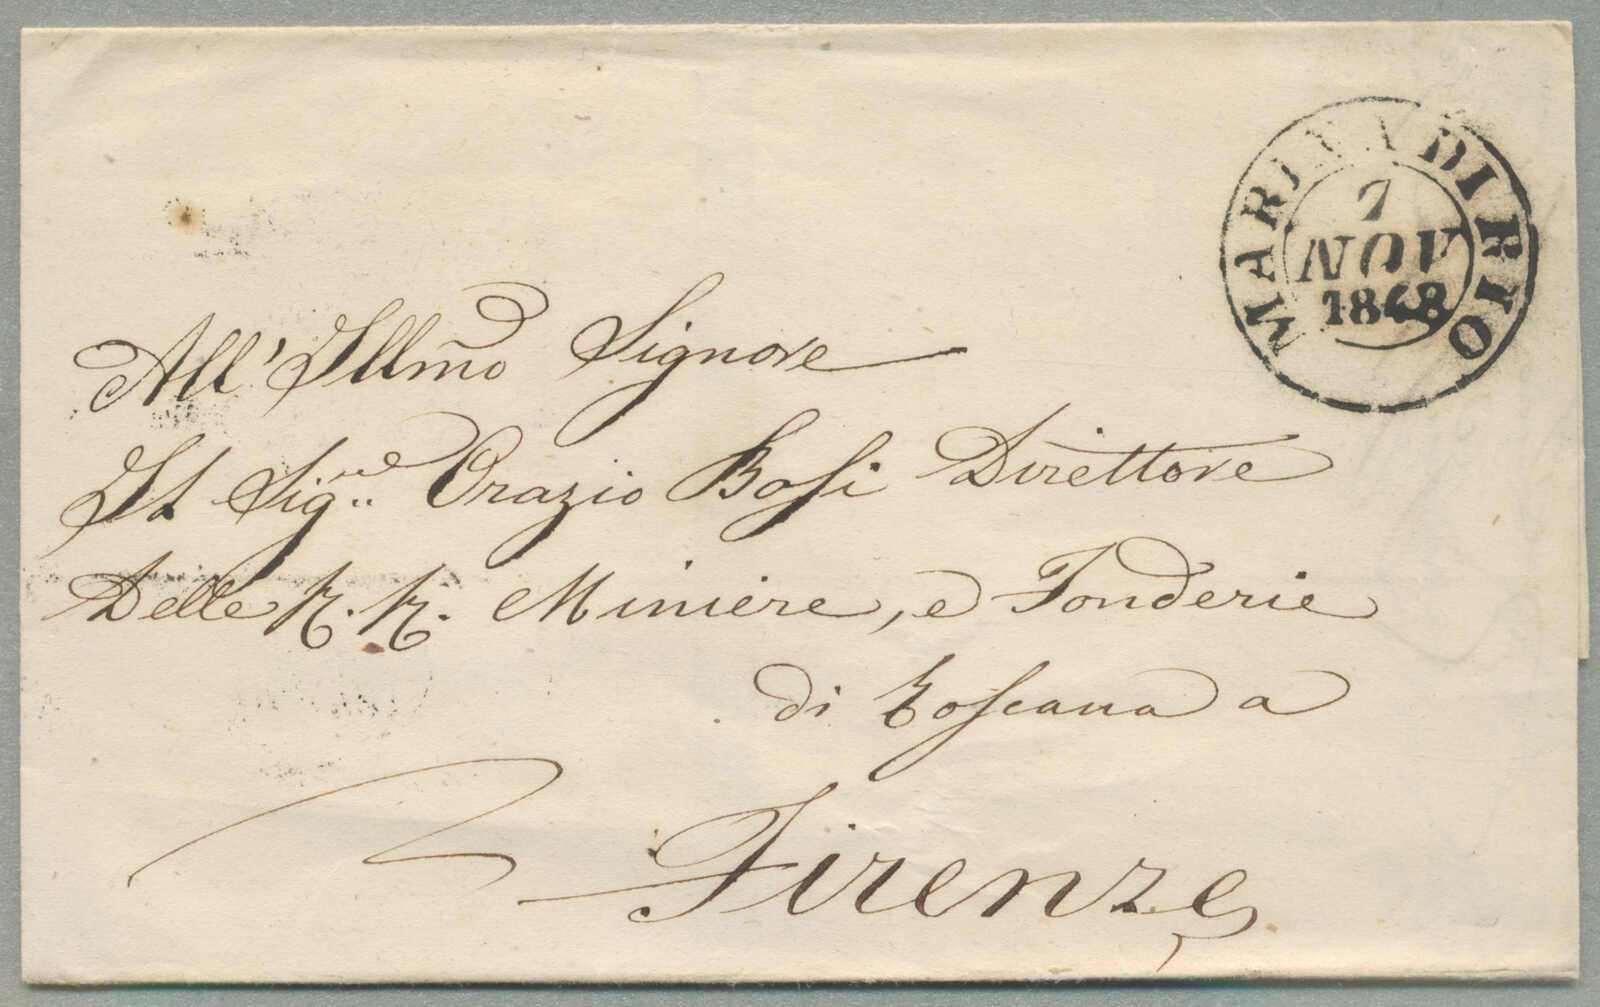 MARINA DI RIO
7
NOV
1848
All' Illmo Signore
Il Sigre Orazio Bosi Direttore
Delle R. R. Miniere, e Fonderie
di Toscana a
Firenze